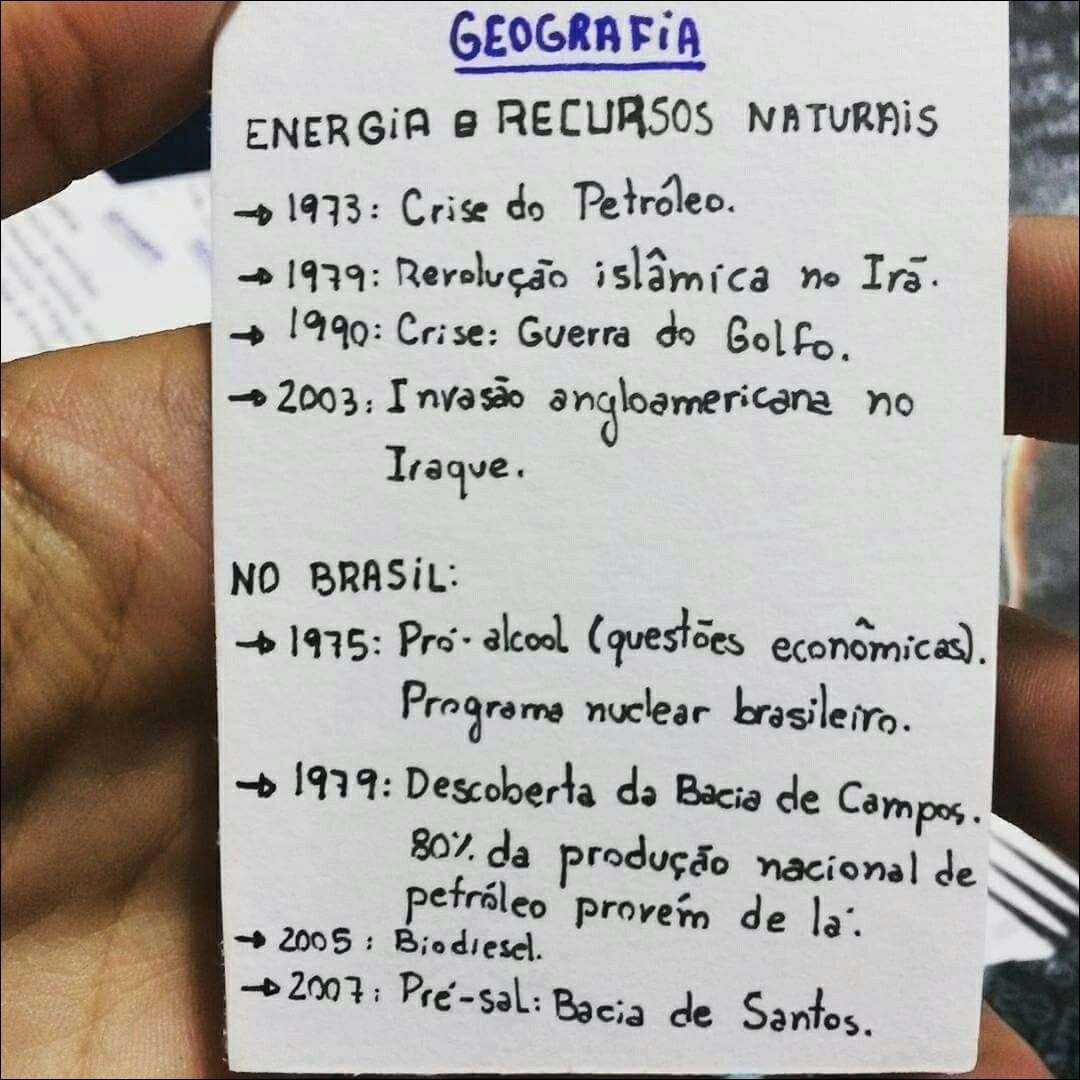 GEOGRAFiA
ENERGiA e RECURSOS NATURAiS
→ 1973: Crise do Petróleo.
→ 1979: Revolução islâmica no Irã.
→ 1990: Crise: Guerra do Golfo.
→ 2003: Invasão angloamericana no
Iraque.
NO BRASiL:
→ 1975: Pró-alcool (questões econômicas).
Programa nuclear brasileiro.
→ 1979: Descoberta da Bacia de Campos.
80% da produção nacional de
petróleo provém de lá.
→ 2005: Biodiesel.
→ 2007: Pré-sal: Bacia de Santos.